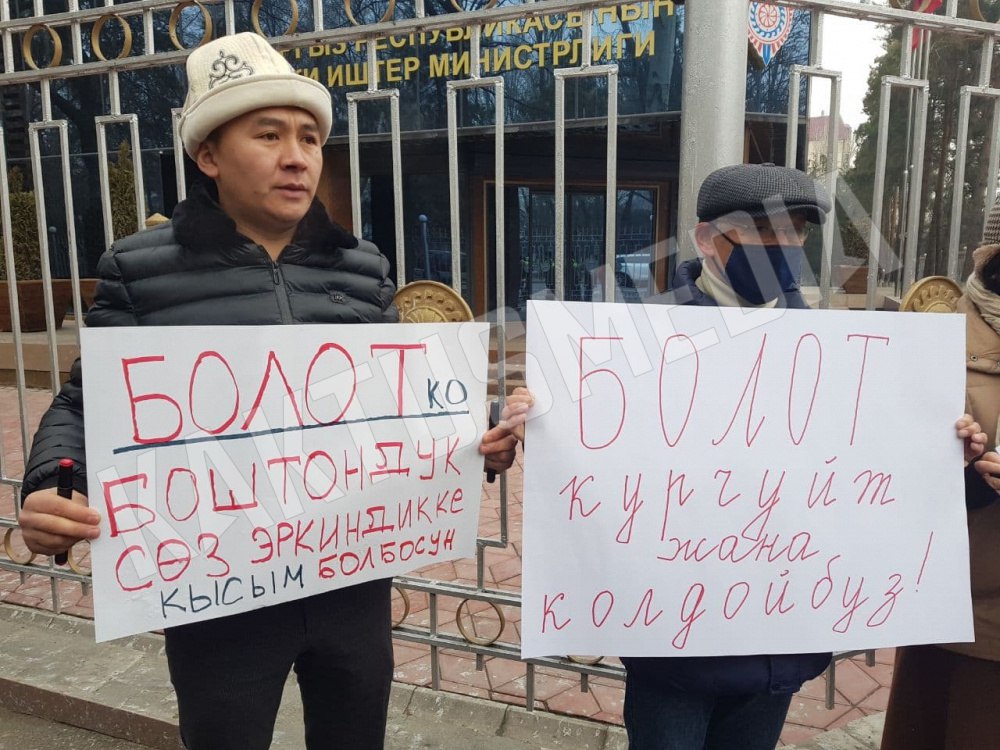 КЫРГЫЗ РЕСПУБЛИКАСЫНЫН
ИЧКИ ИШТЕР МИНИСТРЛИГИ
БОЛОТ КО
БОШТОНДУК
СӨЗ ЭРКИНДИККЕ
КЫСЫМ БОЛБОСУН
БОЛОТ
курчуйт
жана
колдойбуз!
KAKTUSMEDIA